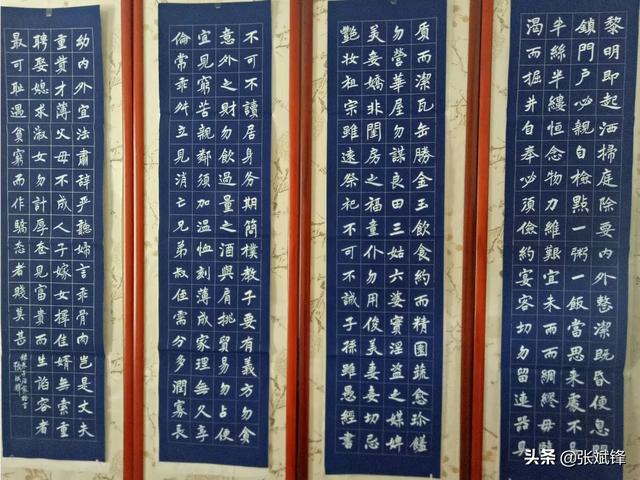 黎明即起洒掃庭除要内外整潔既昏便息關
鎖門户必親自檢點一粥一飯當思来處不易
半絲半縷恒念物力維艱宜未雨而綢繆毋臨
渴而掘井自奉必須儉約宴客切勿留連器具
質而潔瓦缶勝金玉飲食約而精園蔬愈珍饈
勿營華屋勿謀良田三姑六婆實淫盗之媒婢
美妾嬌非閨房之福童仆勿用俊美妻妾切忌
艷妆祖宗雖遠祭祀不可不誠子孫雖愚經書
不可不讀居身务期簡樸教子要有義方勿貪
意外之財勿飲過量之酒與肩挑貿易勿占便
宜見窮苦親鄰須加温恤刻薄成家理無久享
倫常乖舛立見消亡兄弟叔侄需分多潤寡長
幼内外宜法肅辞严聽婦言乖骨肉豈是丈夫
重貲才薄父母不成人子嫁女擇佳婿無索重
聘娶媳求淑女勿計厚奁見富貴而生諂容者
最可耻遇貧窮而作驕态者賤莫甚
朱子治家格言
头条 @张斌锋